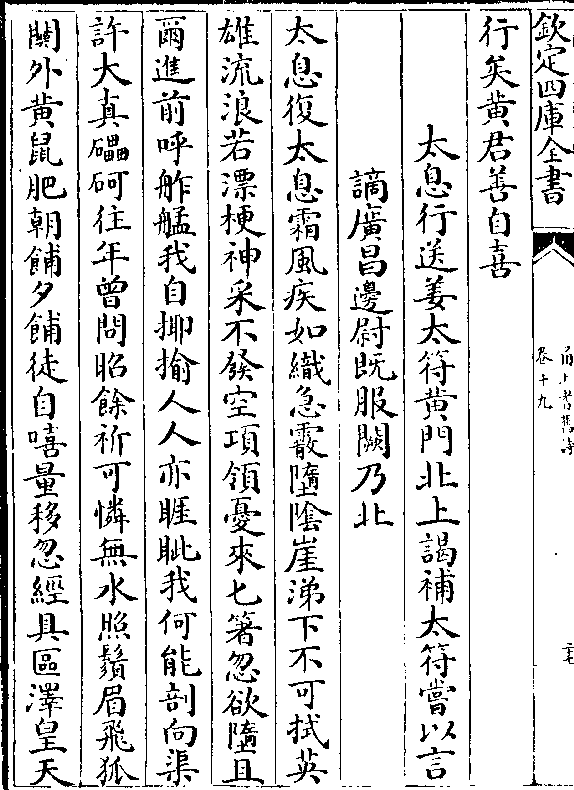 欽定四庫全書
卷十九
行矣黄君善自喜
太息行送姜太符黄門北上謁補太符嘗以言
謫廣昌邊尉既服闋乃北
太息復太息霜風疾如織急霰墮隂崖涕下不可拭英
雄流浪若漂梗神采不發空項領憂來匕箸忽欲墮且
爾進前呼舴艋我自揶揄人人亦睚眦我何能剖向渠
許大真礧砢往年曾問昭餘祈可憐無水照鬚眉飛狐
闗外黄鼠肥朝餔夕餔徒自嘻量移忽經具區澤皇天